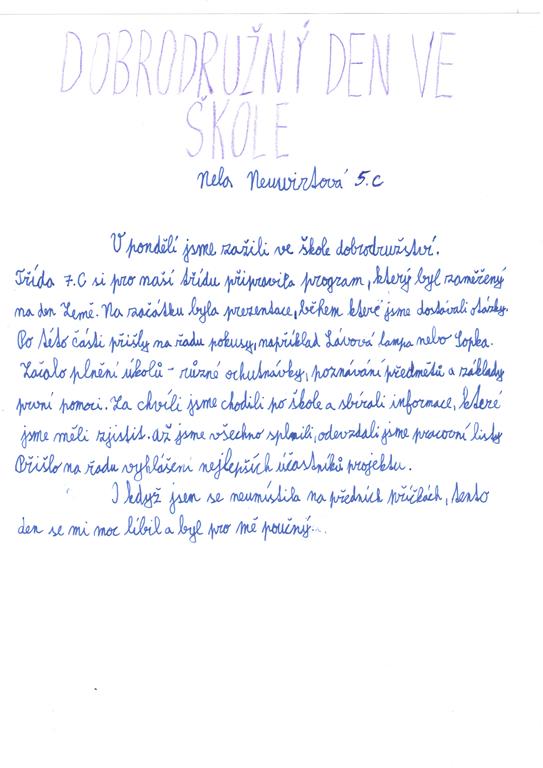 DOBRODRUŽNÝ DEN VE
ŠKOLE
Nela Neuwirtová 5.C
V pondělí jsme zažili ve škole dobrodružství.
Třída 7.C si pro naší třídu připravila program, který byl zaměřený
na den Země. Na začátku byla prezentace, během které jsme dostávali otázky.
Po této části přišly na řadu pokusy, například Lávová lampa nebo Sopka.
Začalo plnění úkolů - různé ochutnávky, poznávání předmětů a základy
první pomoci. Za chvíli jsme chodili po škole a sbírali informace, které
jsme měli zjistit. Až jsme všechno splnili, odevzdali jsme pracovní listy
Přišlo na řadu vyhlášení nejlepších účastníků projektu.
I když jsem se neumístila na předních příčkách, tento
den se mi moc líbil a byl pro mě poučný...